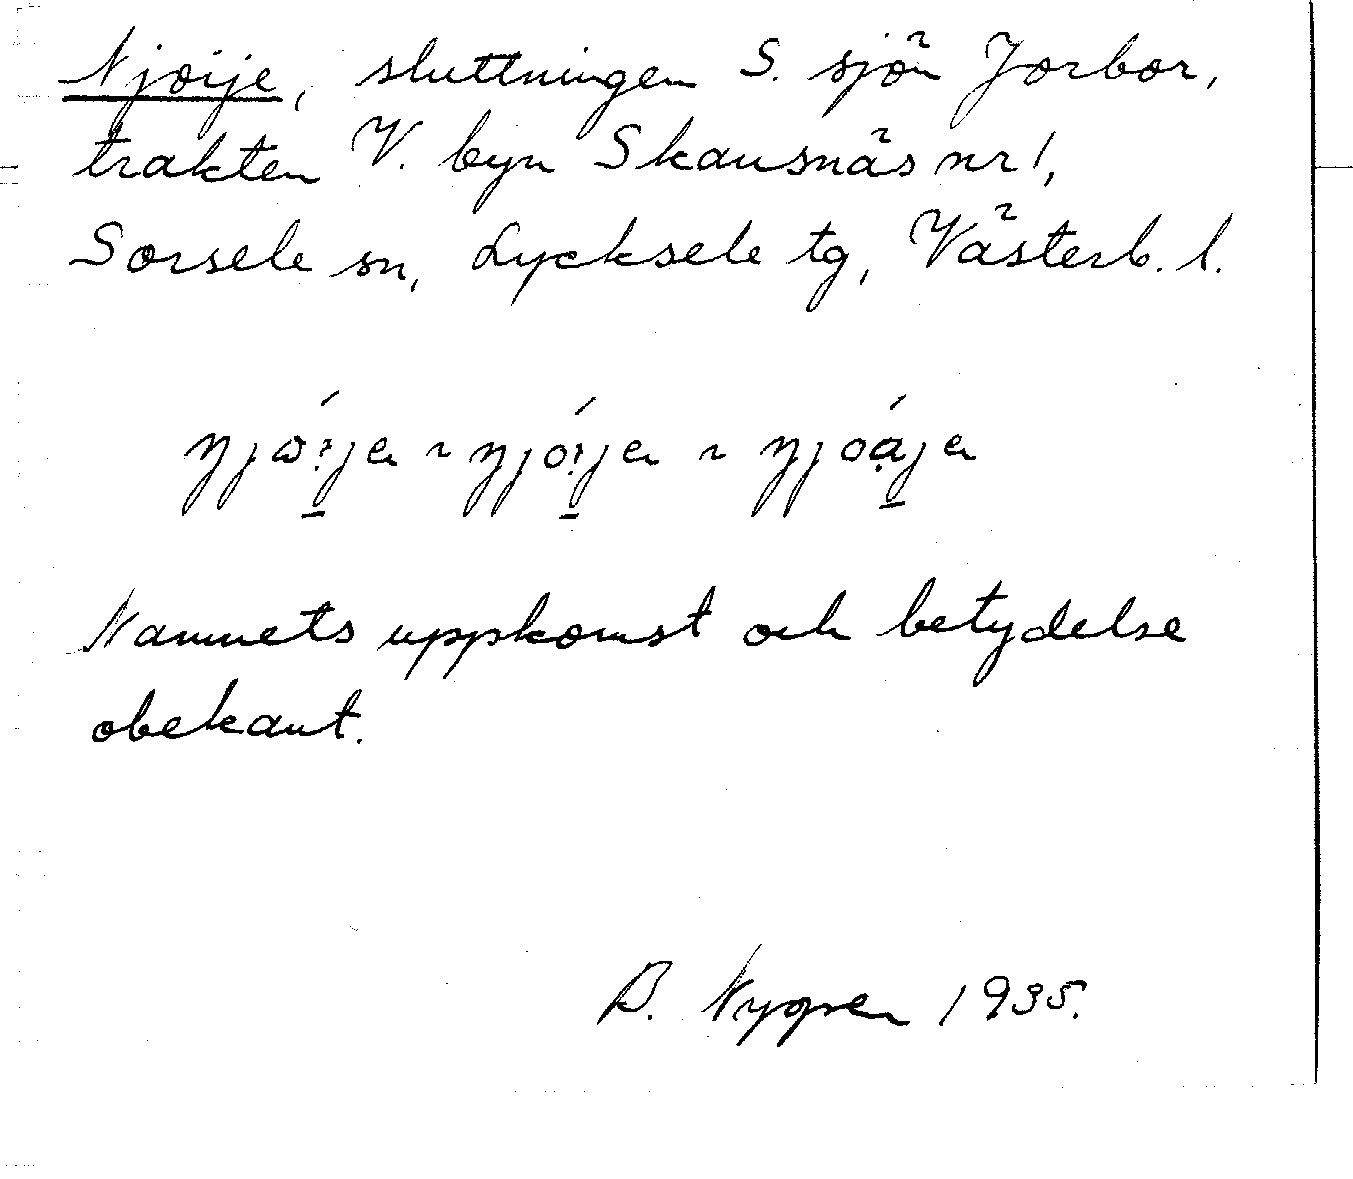 Njoije, sluttningen S. sjön Jorbor,
trakten V. byn Skansnäs nr 1,
Sorsele sn, Lycksele tg, Västerb. l.
Namnets uppkomst och betydelse
obekant.
B. Nygren 1935.